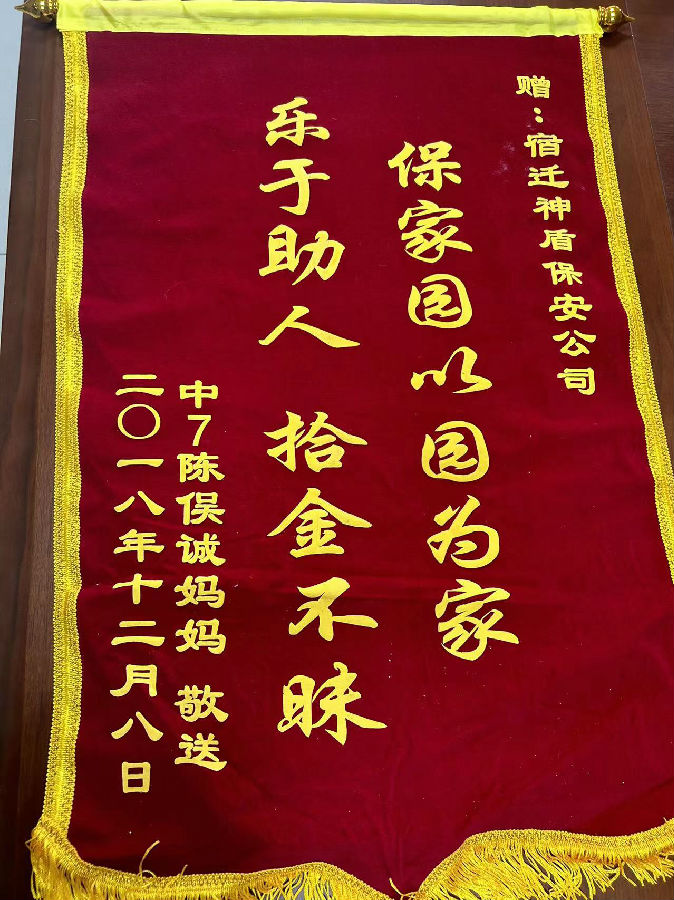 赠：宿迁神盾保安公司
保家园以园为家
乐于助人 拾金不昧
中7陈俣诚妈妈 敬送
二〇一八年十二月八日